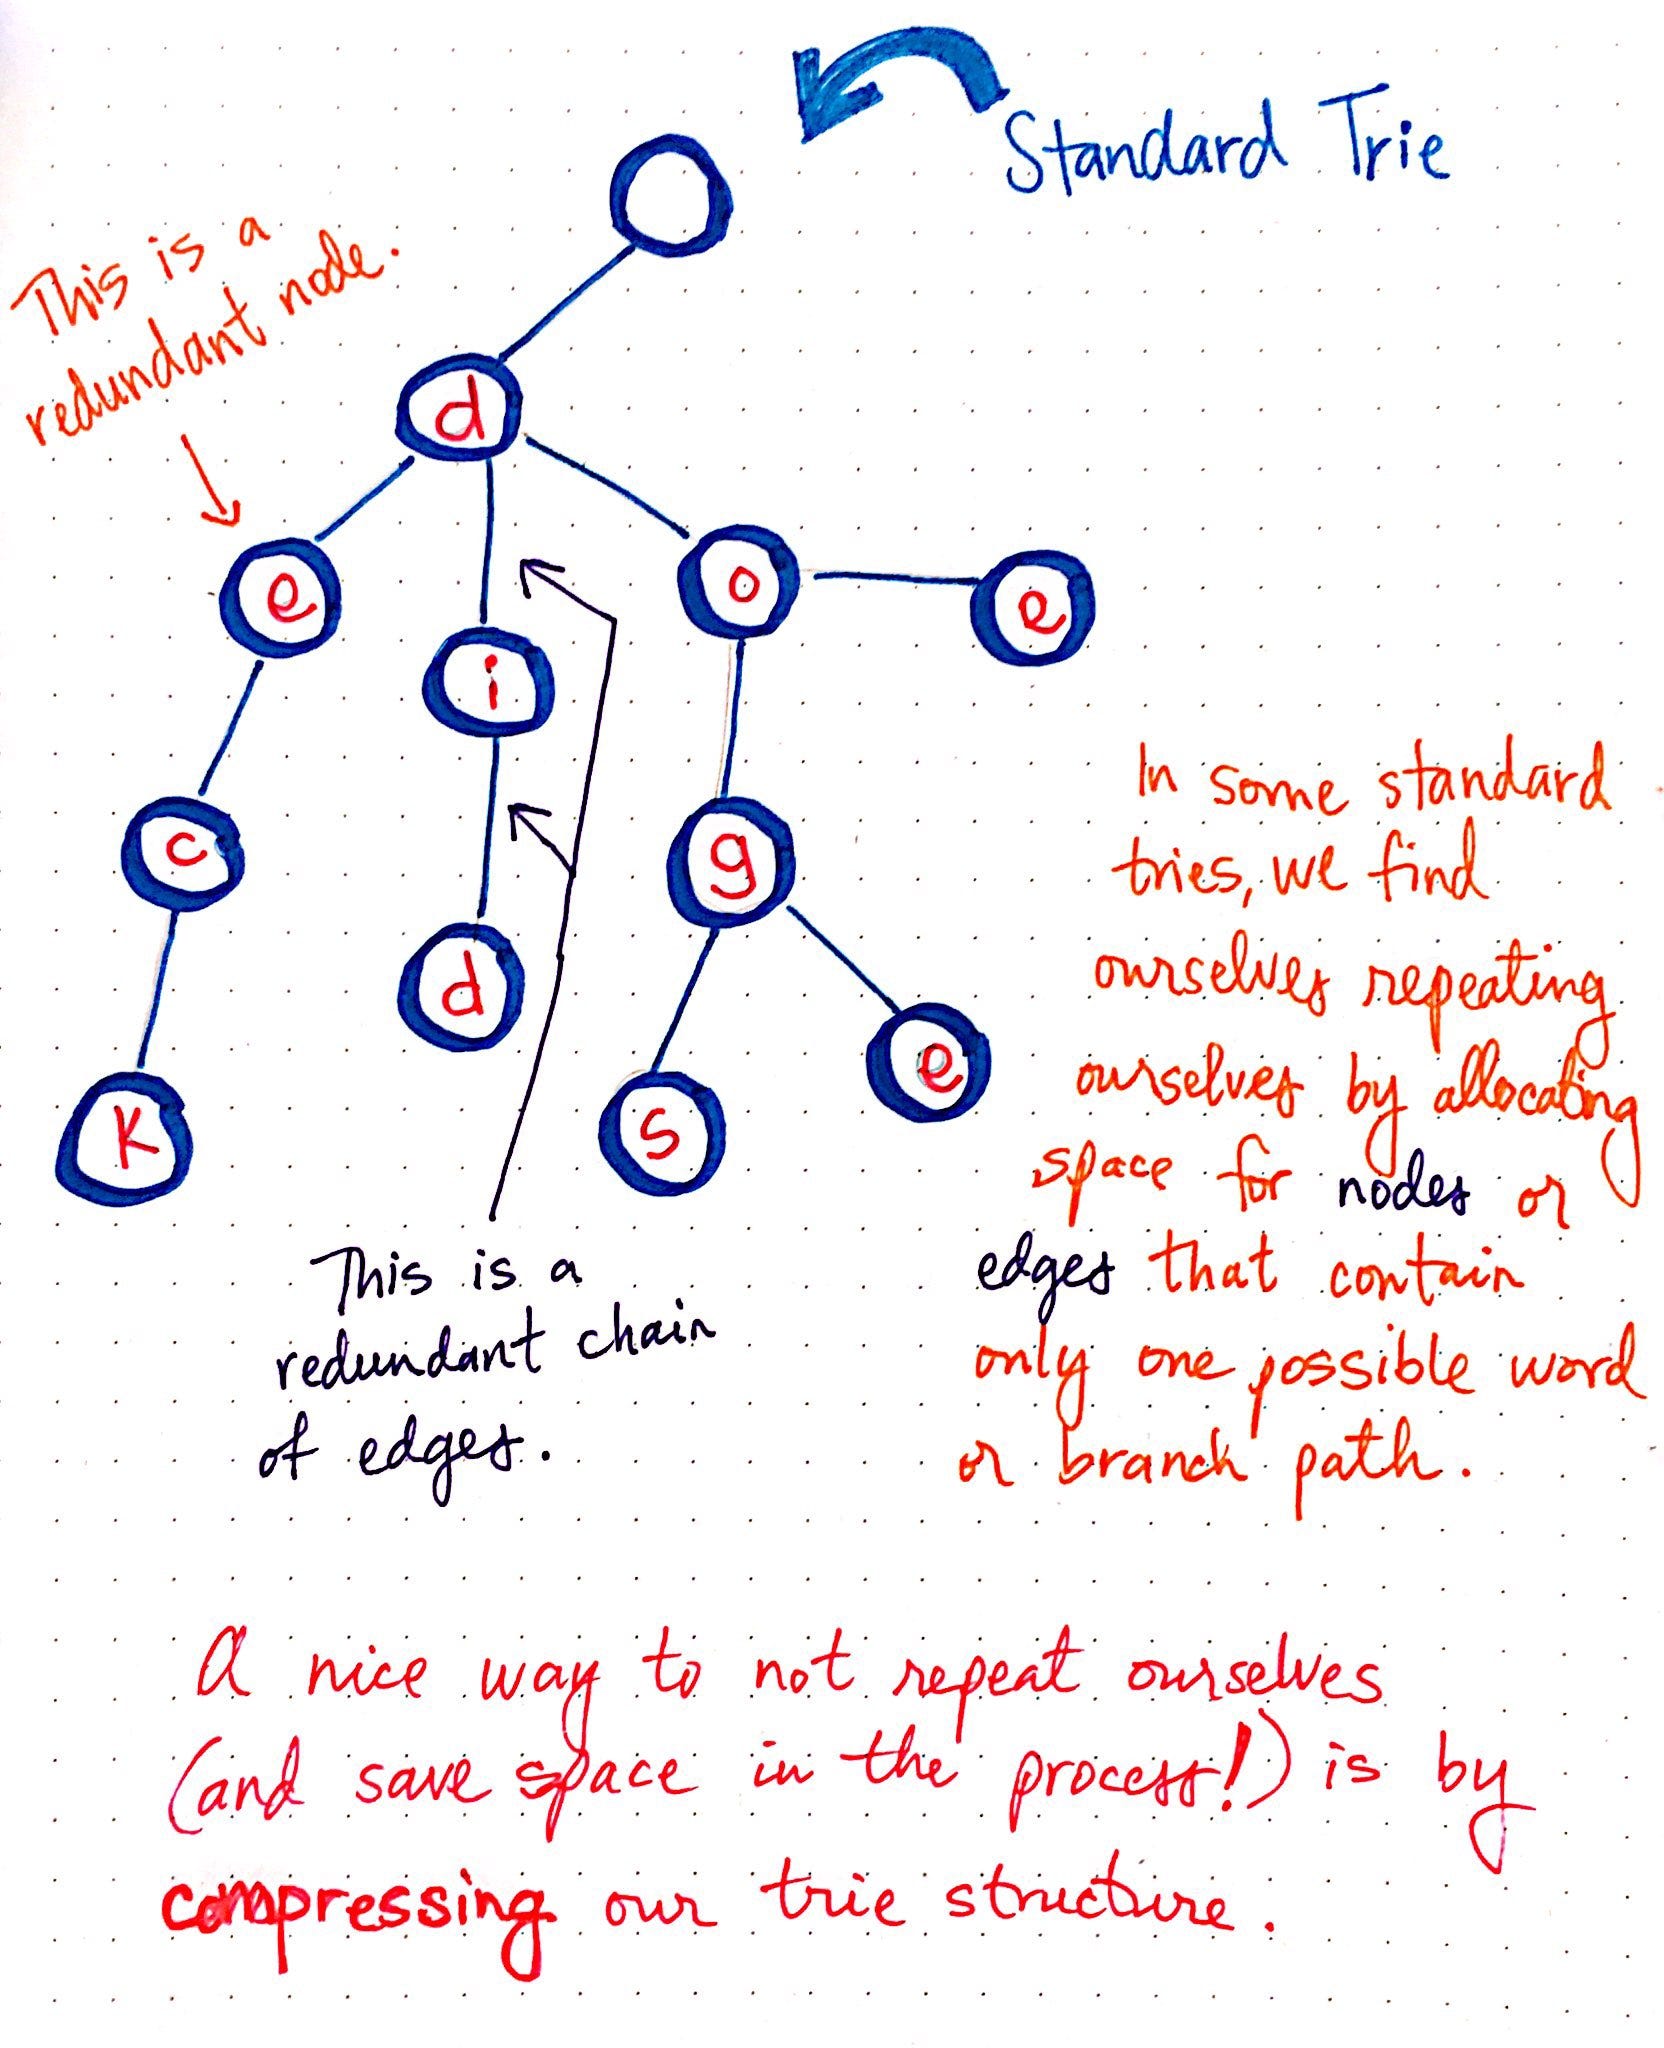 Standard Trie
This is a
redundant node.
d
e
i
o
e
c
d
g
k
s
e
In some standard
tries, we find
ourselves repeating
ourselves by allocating
space for nodes or
edges that contain
only one possible word
or branch path.
This is a
redundant chain
of edges.
A nice way to not repeat ourselves
(and save space in the process!) is by
compressing our trie structure.